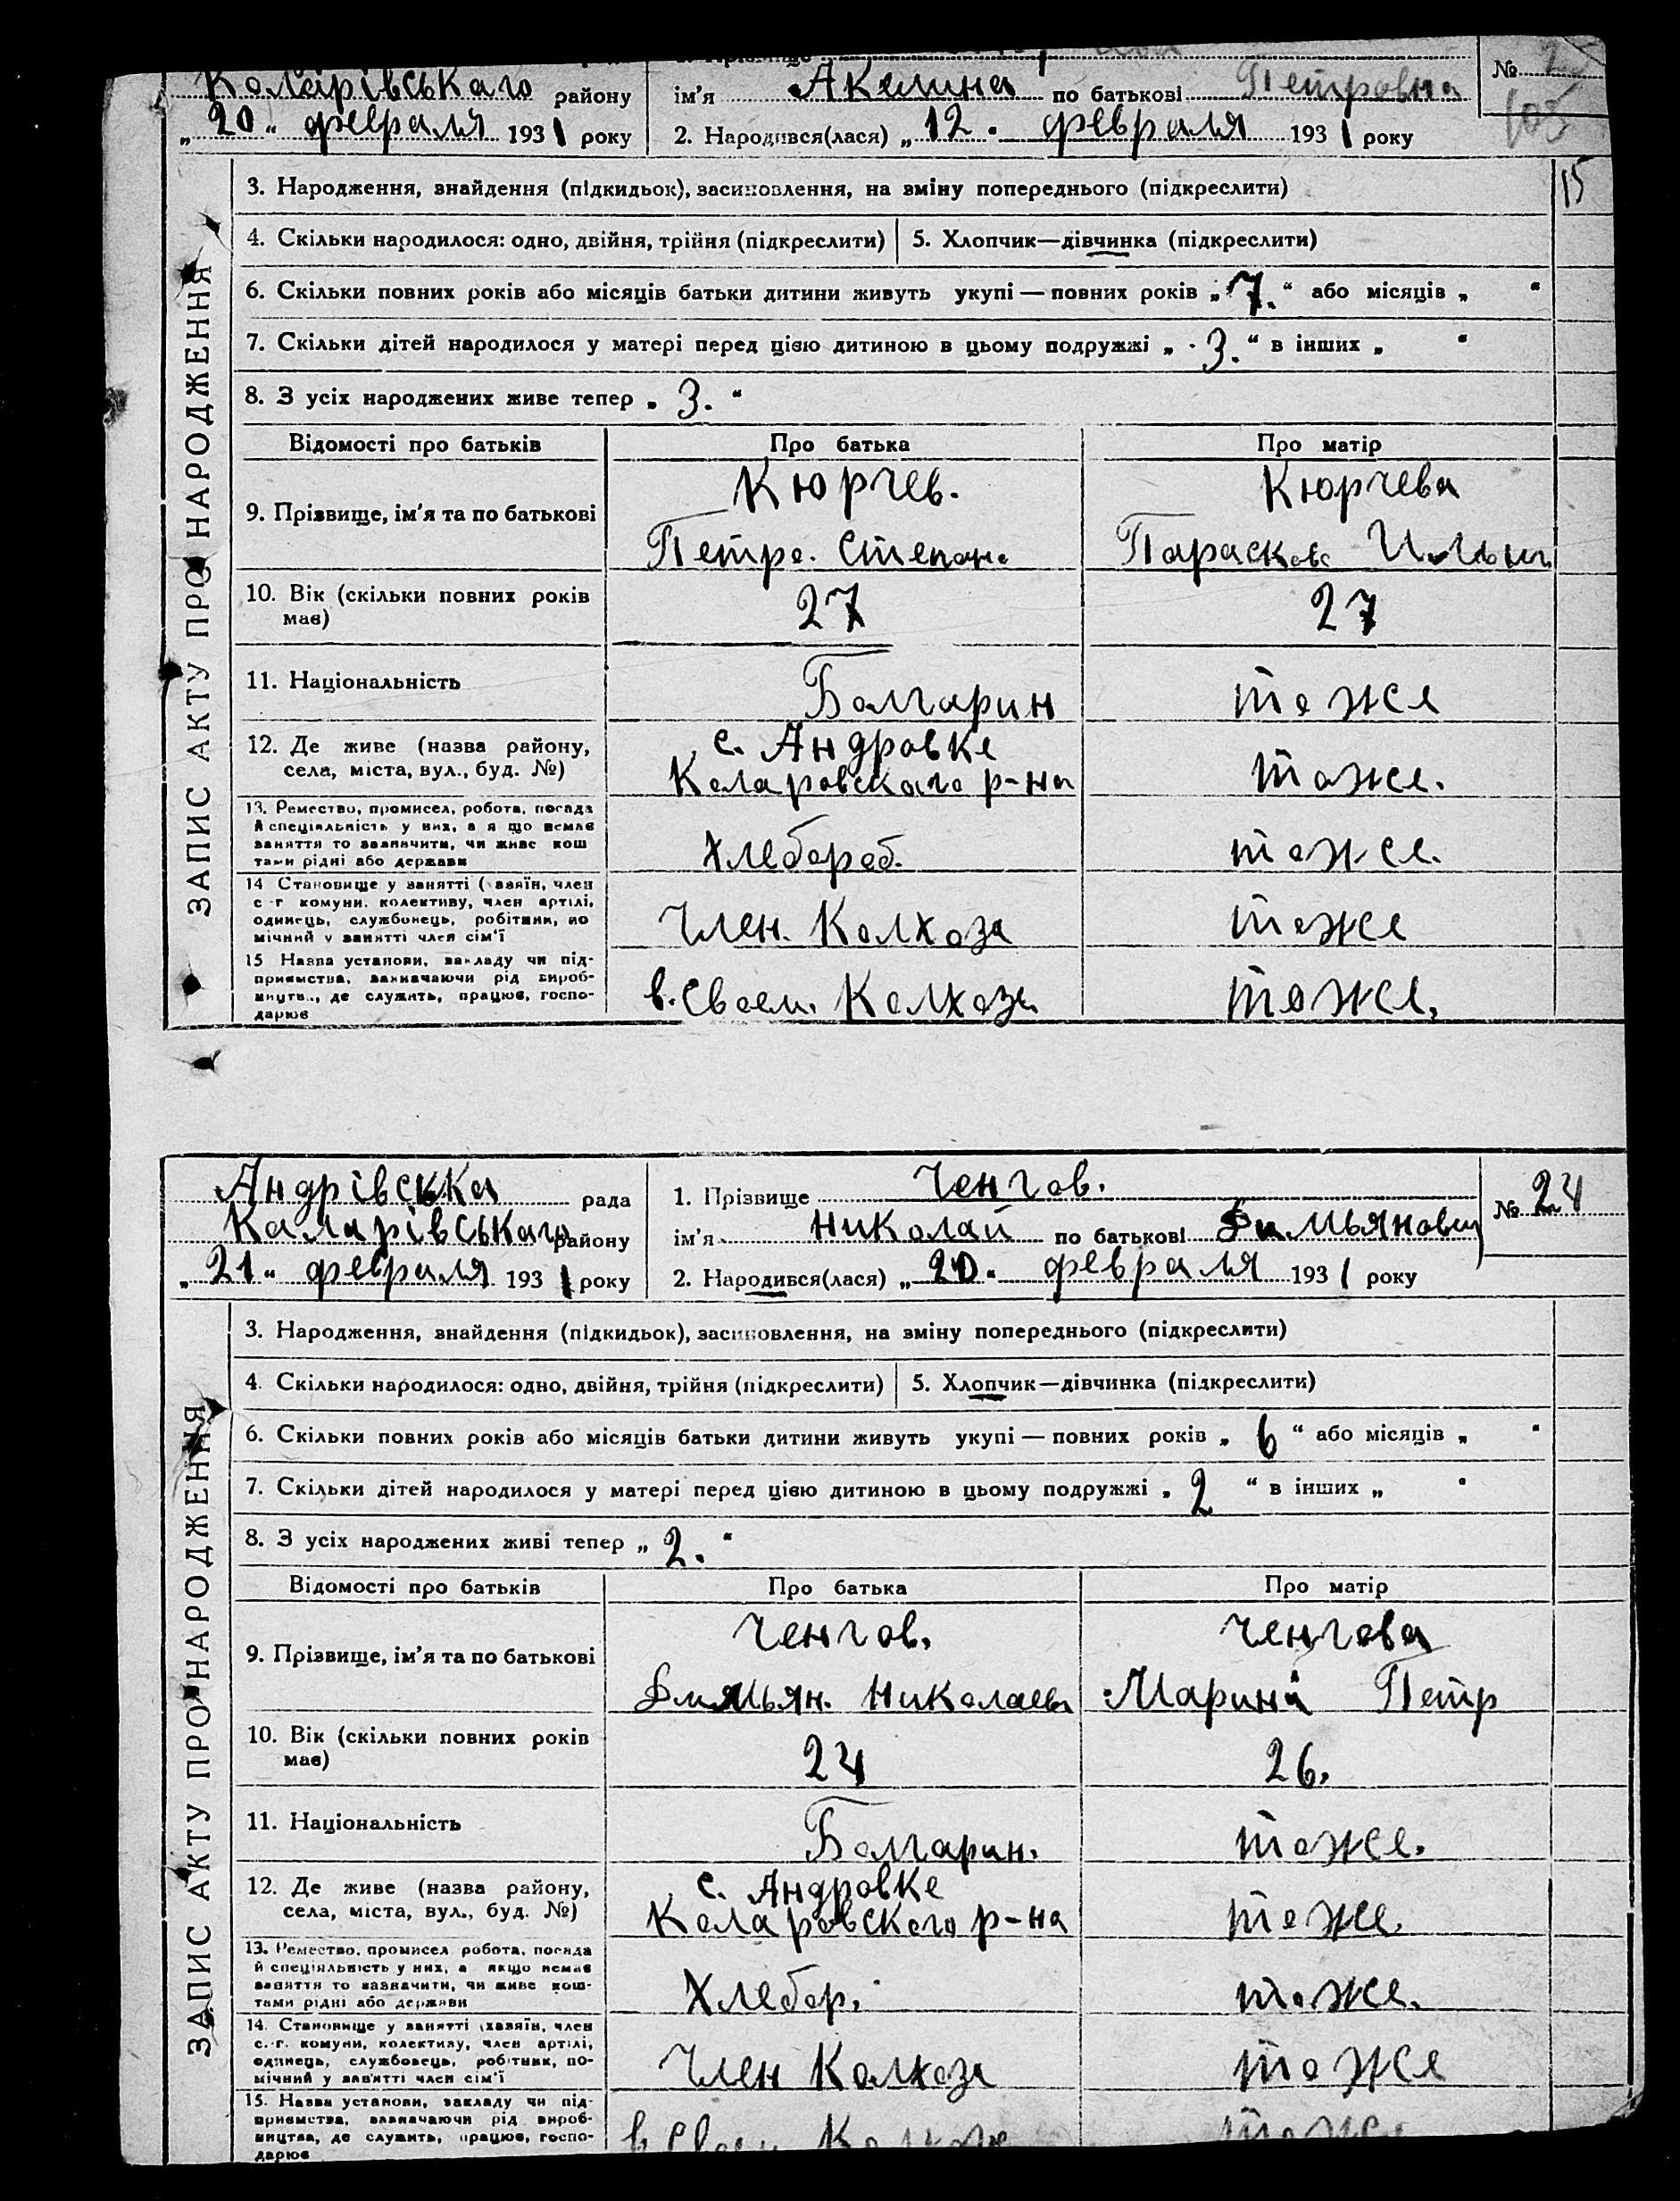 Коларівського району
ім'я Акелина по батькові Петровна
№
105
„ 20 “ февраля 1931 року
2. Народився(лася) „ 12 “ февраля 1931 року
15
ЗАПИС АКТУ ПРО НАРОДЖЕННЯ
3. Народження, знайдення (підкидьок), засиновлення, на зміну попереднього (підкреслити)
4. Скільки народилося: одно, двійня, трійня (підкреслити)
5. Хлопчик—дівчинка (підкреслити)
6. Скільки повних років або місяців батьки дитини живуть укупі — повних років „ 7. “ або місяців „ “
7. Скільки дітей народилося у матері перед цією дитиною в цьому подружжі „ 3. “ в інших „ “
8. З усіх народжених живе тепер „ 3. “
Відомості про батьків
Про батька
Про матір
9. Прізвище, ім'я та по батькові
Кюрчев.
Петро. Степано
Кюрчева
Парасков Ильин
10. Вік (скільки повних років
має)
27
27
11. Національність
Болгарин
тоже
12. Де живе (назва району,
села, міста, вул., буд. №)
с. Андровке
Коларовского р-на
тоже.
13. Ремество, промисел, робота, посада
й спеціяльність у них, а я що немає
заняття то зазначити, чи живе кош
тами рідні або держави
Хлебороб.
тоже.
14 Становище у занятті (хазяїн, член
с-г комуни, колективу, член артілі,
одинець, службовець, робітник, по
мічний у занятті член сім'ї
Член. Колхоза
тоже
15 Назва установи, закладу чи під-
приємства, зазначаючи рід вироб-
ництва, де служить, працює, госпо-
дарює
в. своем. Колхозе
тоже.
Андрівська рада
Каларівського району
„ 21 “ февраля 1931 року
1. Прізвище Ченгов.
ім'я Николай по батькові Димьянович
2. Народився(лася) „ 20 “ февраля 1931 року
№ 24
ЗАПИС АКТУ ПРО НАРОДЖЕННЯ
3. Народження, знайдення (підкидьок), засиновлення, на зміну попереднього (підкреслити)
4. Скільки народилося: одно, двійня, трійня (підкреслити)
5. Хлопчик—дівчинка (підкреслити)
6. Скільки повних років або місяців батьки дитини живуть укупі — повних років „ 6 “ або місяців „ “
7. Скільки дітей народилося у матері перед цією дитиною в цьому подружжі „ 2 “ в інших „ “
8. З усіх народжених живі тепер „ 2. “
Відомості про батьків
Про батька
Про матір
9. Прізвище, ім'я та по батькові
Ченгов.
Димьян. Николаев
Ченгова
Марина Петр
10. Вік (скільки повних років
має)
24
26.
11. Національність
Болгарин.
тоже.
12. Де живе (назва району,
села, міста, вул., буд. №)
с. Андровке
Коларовского р-на
тоже.
13. Ремество, промисел робота, посада
й спеціяльність у них, а якщо немає
заняття то зазначити, чи живе кош-
тами рідні або держави
Хлебор.
тоже.
14. Становище у занятті (хазяїн, член
с.-г. комуни, колективу, член артілі,
одинець, службовець, робітник, по-
мічний у занятті член сім'ї
Член Колхоза
тоже
15. Назва установи, закладу чи під-
приємства, зазначаючи рід вироб-
ництва, де служить, працює, госпо-
дарює
в своем Колхозе
тоже.